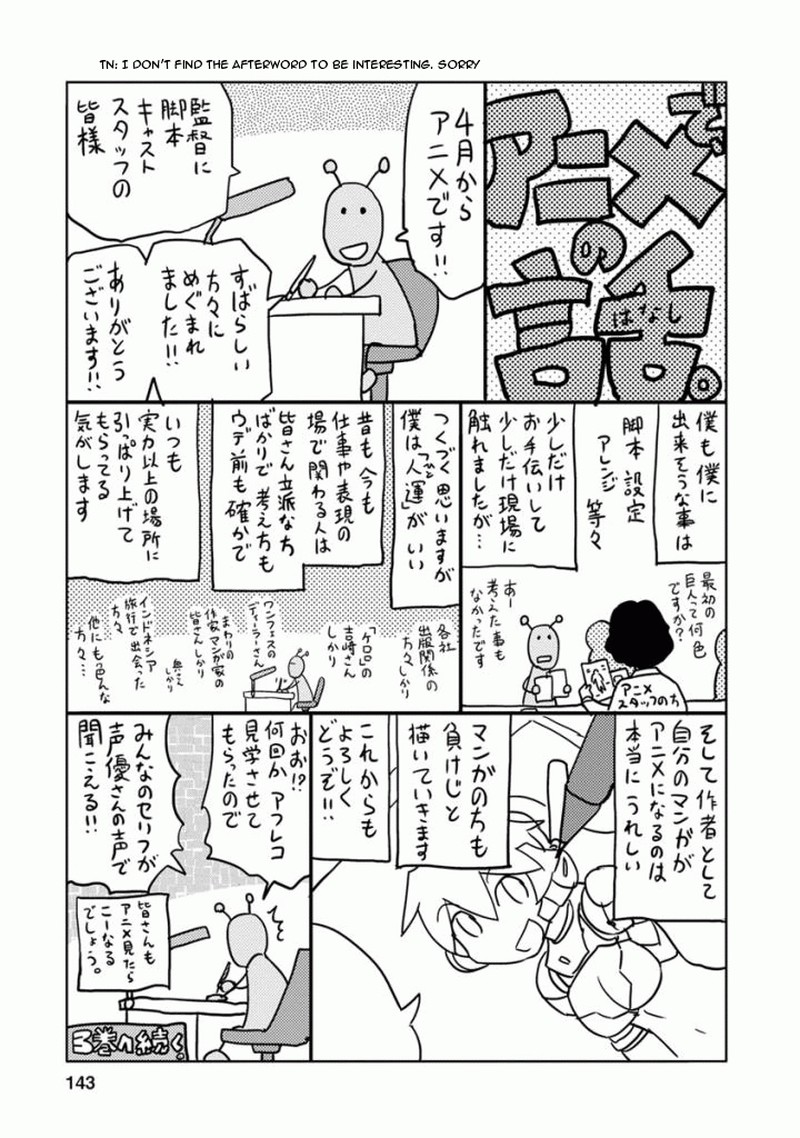 TN: I DON'T FIND THE AFTERWORD TO BE INTERESTING. SORRY
で、
アニメ
の
話。
はなし
4月から
アニメです!!
監督に
脚本
キャスト
スタッフの
皆様
すばらしい
方々に
めぐまれ
ました!!
ありがとう
ございます!!
僕も僕に
出来そうな事は
脚本 設定
アレンジ 等々
少しだけ
お手伝いして
少しだけ現場に
触れましたが…
最初の
巨人って何色
ですか?
あー
考えた事も
なかったです
アニメ
スタッフの方
つくづく思いますが
僕は「人運」がいい
昔も今も
仕事や表現の
場で関わる人は
皆さん立派な方
ばかりで 考え方も
ウデ前も確かで
いつも
実力以上の場所に
引っぱり上げて
もらってる
気がします
各社
出版関係の
方々しかり
「ケロロ」の
吉崎さん
しかり
ワンフェスの
ディーラーさん
まわりの
作家マンガ家の
皆さんしかり
奥さん
しかり
インドネシア
旅行で出会った
方々
他にも色んな
方々…
そして作者として
自分のマンガが
アニメになるのは
本当にうれしい
マンガの方も
負けじと
描いていきます
これからも
よろしく
どうぞ!!
おお!?
何回かアフレコ
見学させて
もらったので
みんなのセリフが
声優さんの声で
聞こえる!!
皆さんも
アニメ見たら
こーなる
でしょう。
3巻へ続く。
143